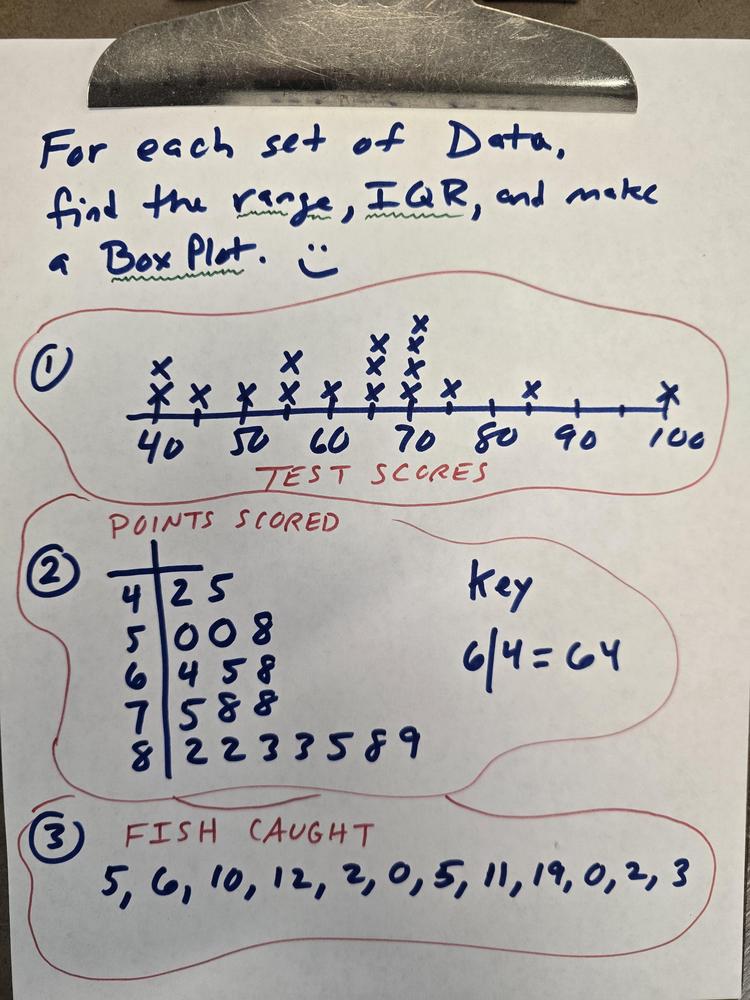 For each set of Data,
find the range, IQR, and make
a Box Plot. :)
1
x
x x
x x x x
x x x x x x x x x x
40 50 60 70 80 90 100
TEST SCORES
POINTS SCORED
2
4 | 2 5
5 | 0 0 8
6 | 4 5 8
7 | 5 8 8
8 | 2 2 3 3 5 8 9
Key
6|4 = 64
3 FISH CAUGHT
5, 6, 10, 12, 2, 0, 5, 11, 19, 0, 2, 3